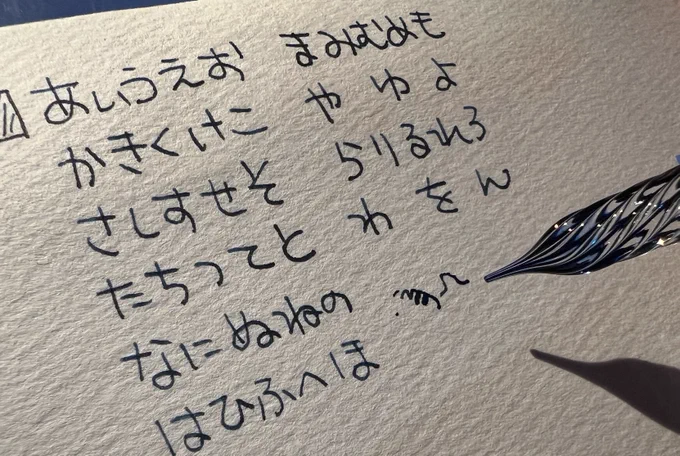 あいうえお まみむめも
かきくけこ や ゆ よ
さしすせそ らりるれろ
たちつてと わ を ん
なにぬねの
はひふへほ